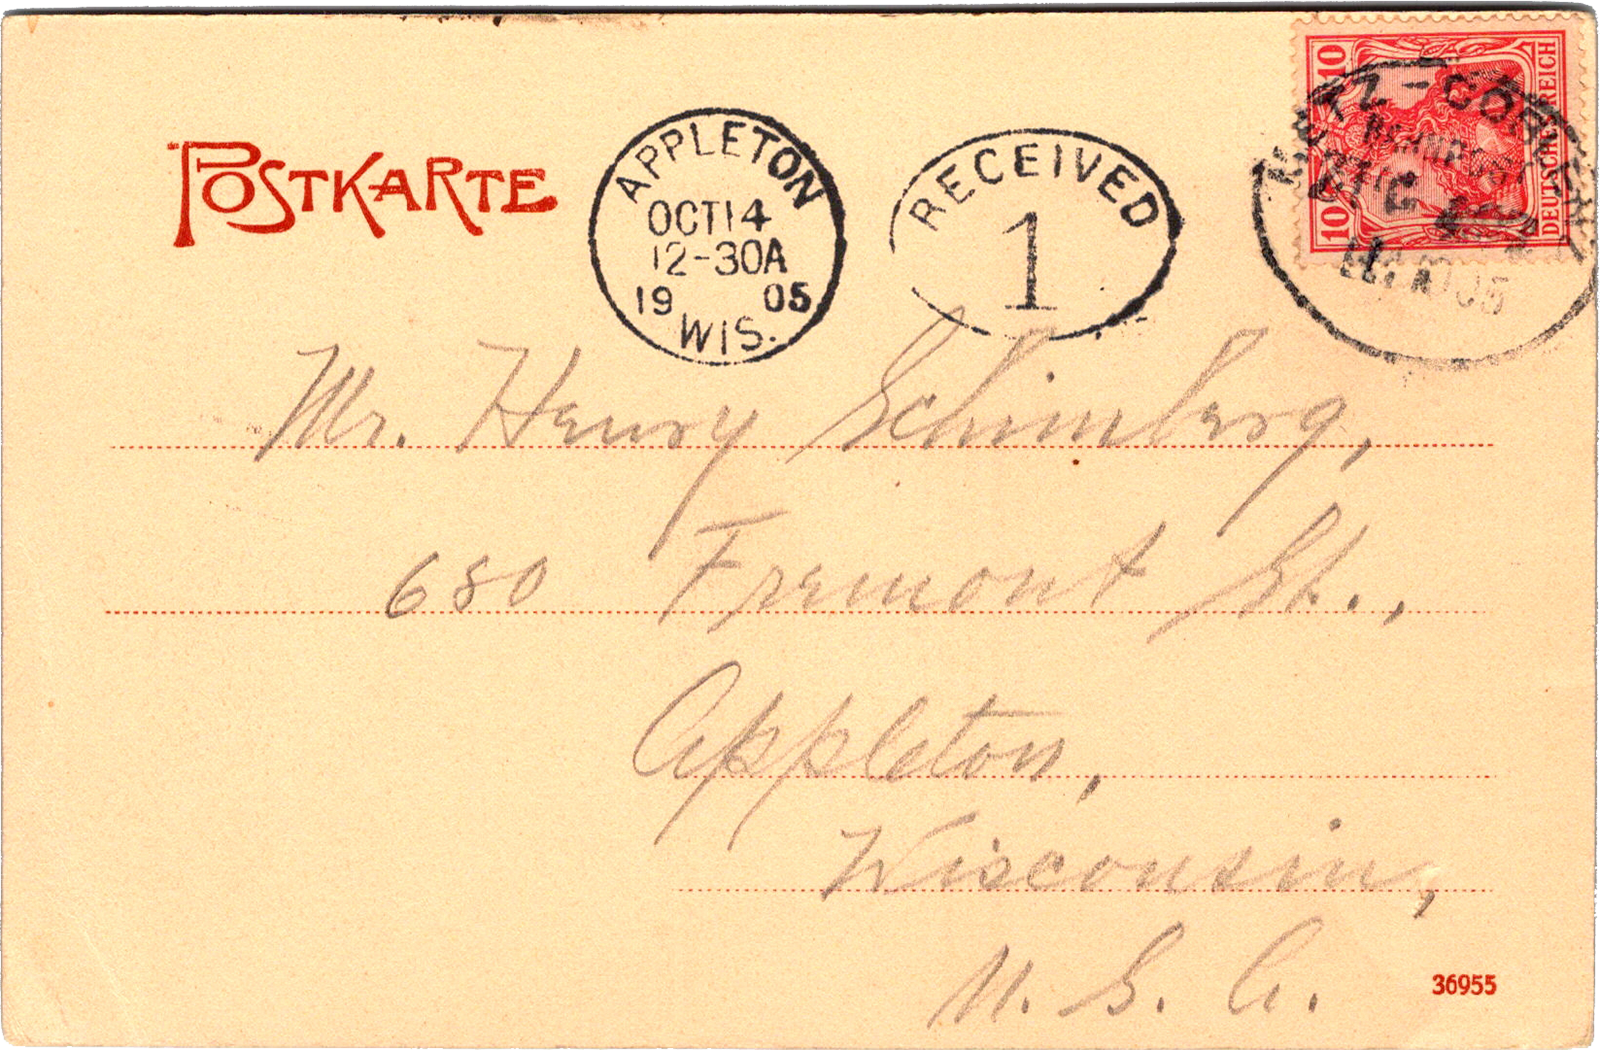 POSTKARTE
APPLETON
OCT 14
12-30A
19 05
WIS.
RECEIVED
1
10 10
DEUTSCHES REICH
METZ-COBLENZ
BAHNPOST
ZUG
05
Mr. Henry Schimberg,
680 Fremont St.,
Appleton,
Wisconsin,
U. S. A.
36955